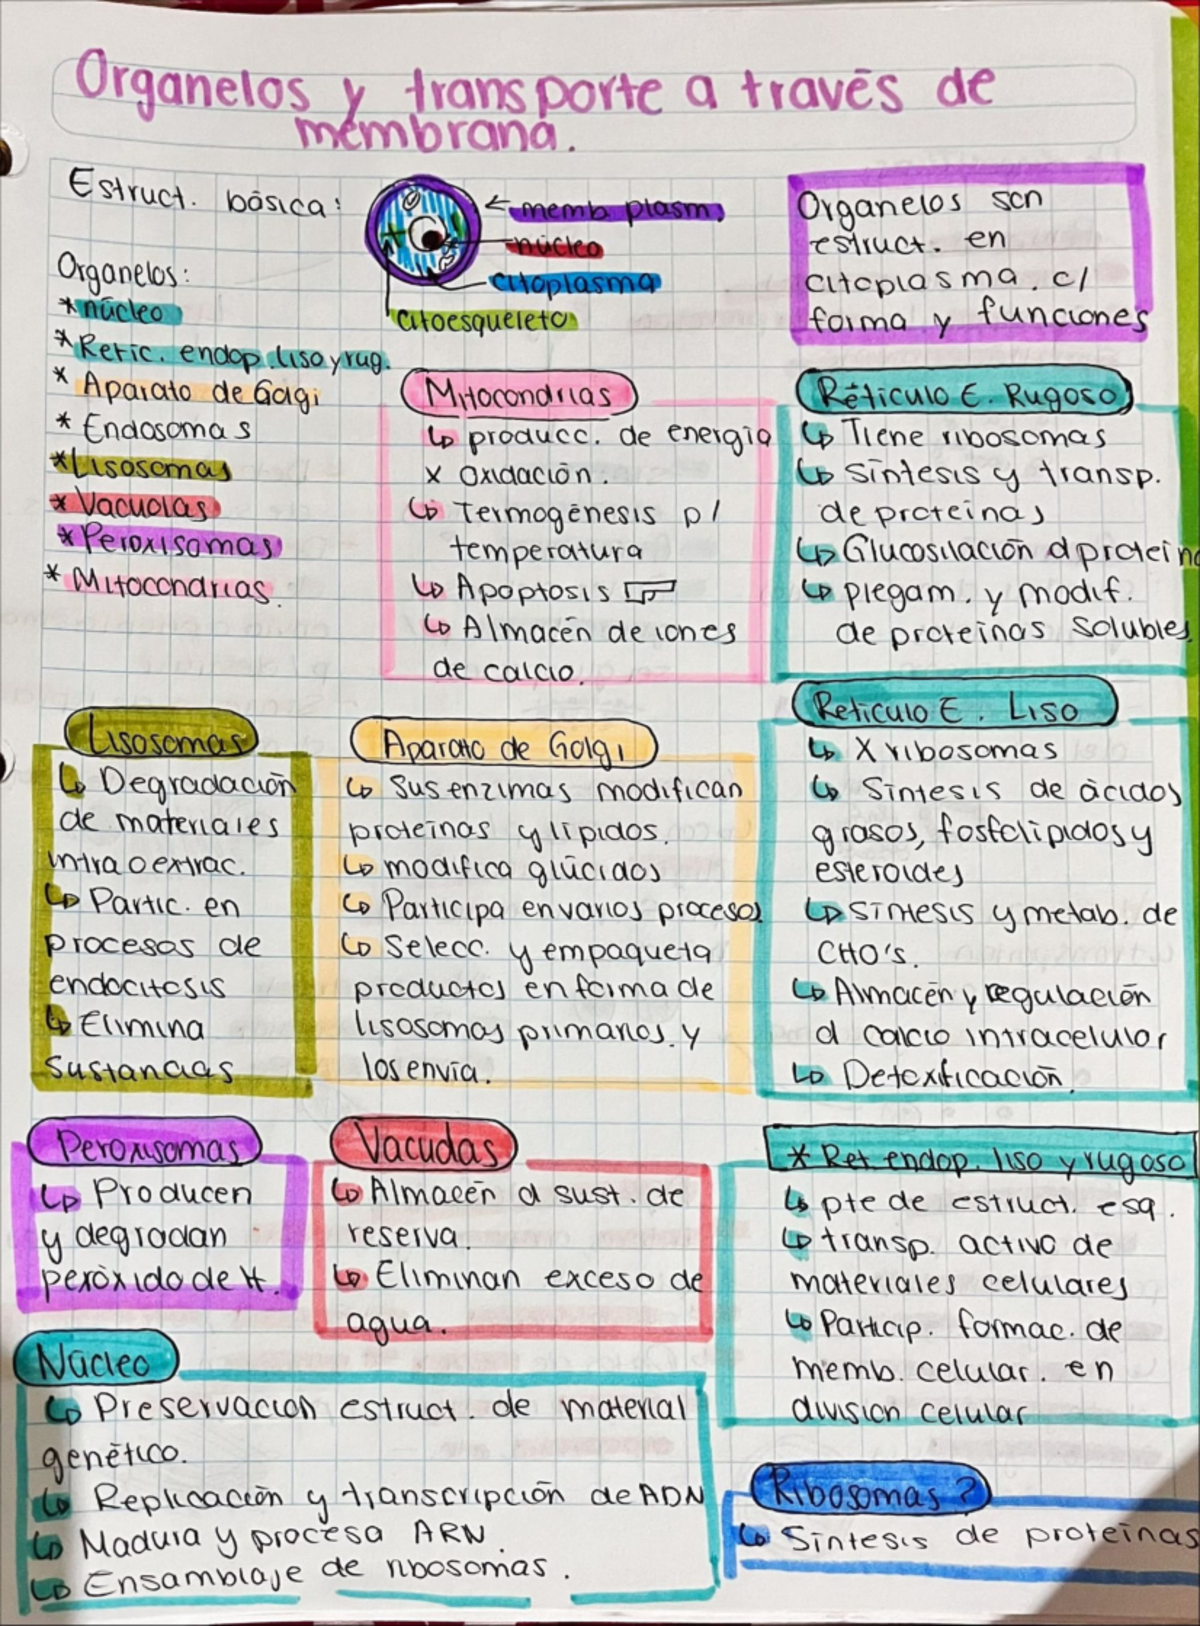 Organelos y transporte a través de
membrana.
Estruct. básica:
← memb plasm.
núcleo
citoplasma
citoesqueleto
Organelos son
estruct. en
citoplasma. c/
forma y funciones
Organelos:
* núcleo
* Retic. endop. liso y rug.
* Aparato de Golgi
* Endosomas
* Lisosomas
* Vacuolas
* Peroxisomas
* Mitocondrias.
Mitocondrias
↳ producc. de energía
x oxidación.
↳ Termogénesis p/
temperatura
↳ Apoptosis
↳ Almacén de iones
de calcio.
Réticulo E. Rugoso
↳ Tiene ribosomas
↳ síntesis y transp.
de proteínas
↳ Glucosilación d protein
↳ plegam. y modif.
de proteínas solubles
Lisosomas
↳ Degradación
de materiales
intra o extrac.
↳ Partic. en
procesos de
endocitosis
↳ Elimina
sustancias
Aparato de Golgi
↳ Sus enzimas modifican
proteínas y lípidos.
↳ modifica glúcidos
↳ Participa en varios procesos
↳ Selecc. y empaqueta
productos en forma de
lisosomas primarios y
los envía.
Reticulo E. Liso
↳ X ribosomas
↳ Síntesis de ácidos
grasos, fosfolípidos y
esteroides
↳ síntesis y metab. de
CHO's.
↳ Almacén y regulación
d calcio intracelular
↳ Detoxificación.
Peroxisomas
↳ Producen
y degradan
peróxido de H.
Vacuolas
↳ Almacén d sust. de
reserva.
↳ Eliminan exceso de
agua.
* Ret. endop. liso y rugoso
↳ pte de estruct. esq.
↳ transp. activo de
materiales celulares
↳ Particip. formac. de
memb. celular. en
división celular
Núcleo
↳ Preservación estruct. de material
genético.
↳ Replicación y transcripción de ADN
↳ Madura y procesa ARN.
↳ Ensamblaje de ribosomas.
Ribosomas ?
↳ Síntesis de proteínas